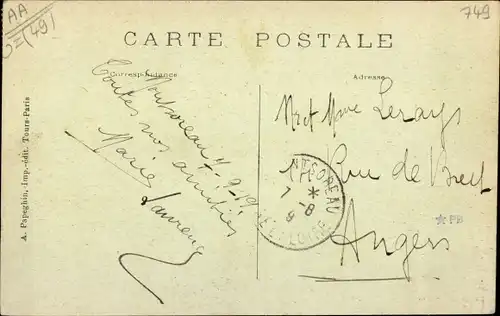 AA
(49)
749
CARTE POSTALE
Correspondance
Adresse
A. Papeghin, Imp.-édit. Tours-Paris
Montsoreau
Toutes nos amitiés
Marie Laurence
Mr et Mme Lerays
Rue de Brest
Angers
MTSOREAU
7 * 
8-8
ET LOIRE
* PB